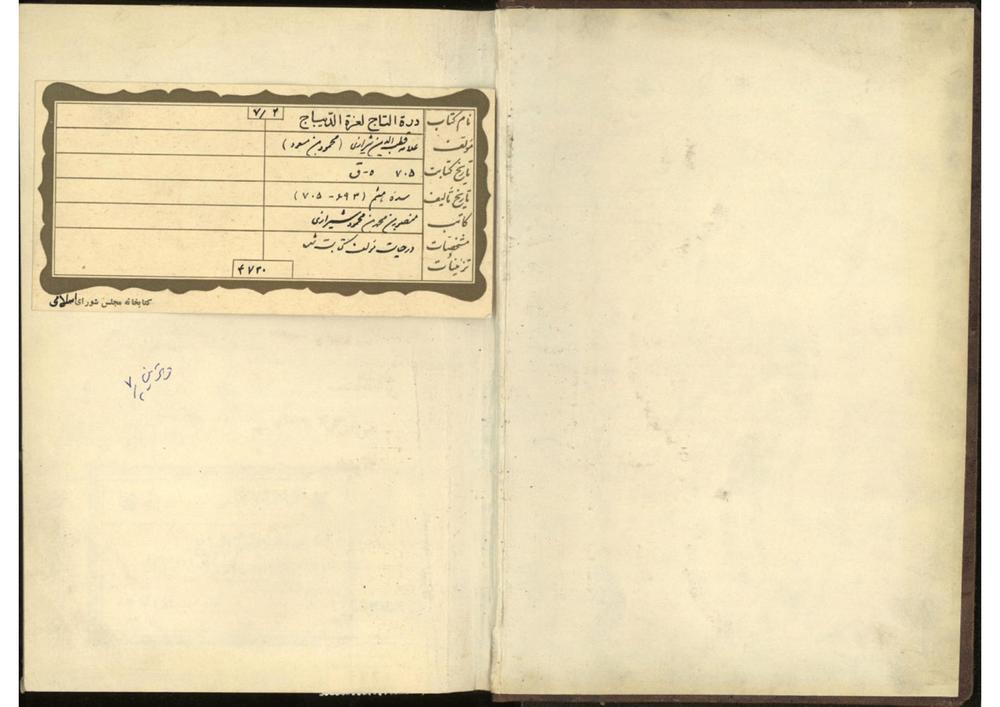 نام کتاب درة التاج لغرة الدیباج ۷/۲
مؤلف علامه قطب‌الدین شیرازی (محمود بن مسعود)
تاریخ کتابت ۷۰۵ ه-ق
تاریخ تألیف سده هشتم (۶۹۳ - ۷۰۵)
کاتب منصور بن محمد بن محمود شیرازی
مشخصات و تزئینات در حیات مؤلف کتابت شده
۴۷۲۰
کتابخانه مجلس شورای اسلامی